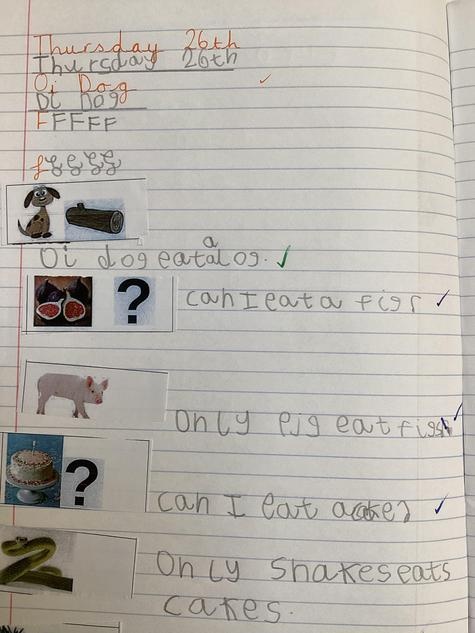 Thursday 26th
Thursday 26th
Oi Dog
Oi Dog
FFFFF
f
a
Oi dog eatalog.
?
can I eat a figs
Only pig eat figs
?
can I eat a cake?
Only Snakes eats
cakes.